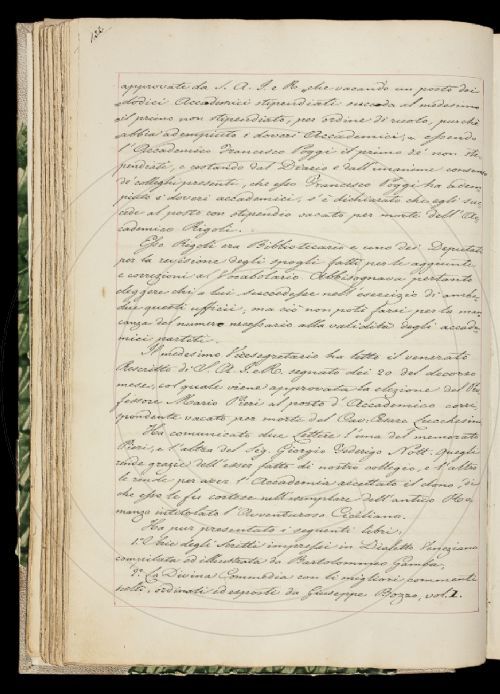 132
approvate da S. A. I. e R. che vacando un posto dei
dodici Accademici stipendiati succeda al medesimo
il primo non stipendiato, per ordine di ruolo, purchè
abbia adempiuto i doveri Accademici, essendo
l'Accademico Francesco Poggi il primo de' non sti-
pendiati, e costando dal Diario e dall'unanime consenso
de' colleghi presenti, che esso Francesco Poggi ha adem-
piuto i doveri accademici, s'è dichiarato che egli suc-
cede al posto con stipendio vacato per morte dell'Ac-
cademico Rigoli.
Esso Rigoli era Bibliotecario e uno dei Deputati
per la revisione degli spogli fatti per le aggiunte
e correzioni al Vocabolario. Abbisognava pertanto
eleggere chi a lui succedesse nell'esercizio di ambe-
due questi ufficii, ma ciò non potè farsi per la man-
canza del numero necessario alla validità degli accade-
mici partiti.
Il medesimo Vicesegretario ha letto il venerato
Rescritto di S. A. I. e R. segnato dei 20 del decorso
mese, col quale viene approvata la elezione del Pro-
fessore Mario Pieri al posto d'Accademico corri-
spondente vacato per morte del Cav. Cesare Lucchesini
Ha comunicato due Lettere l'una del memorato
Pieri, e l'altra del Sig. Giorgio Federigo Nott. Quegli
rende grazie dell'esser fatto di nostro collegio, e l'altro
le rende per aver l'Accademia accettato il dono, di
che esso le fu cortese nell'esemplare dell'antico Ro-
manzo intitolato l'Avventuroso Ciciliano.
Ha pur presentato i seguenti libri.
1.° Serie degli Scritti impressi in Dialetto Veneziano
compilata ed illustrata da Bartolommeo Gamba.
2.° La Divina Commedia con li migliori commenti
scelti, ordinati ed esposti da Giuseppe Bozzo, vol. 1.